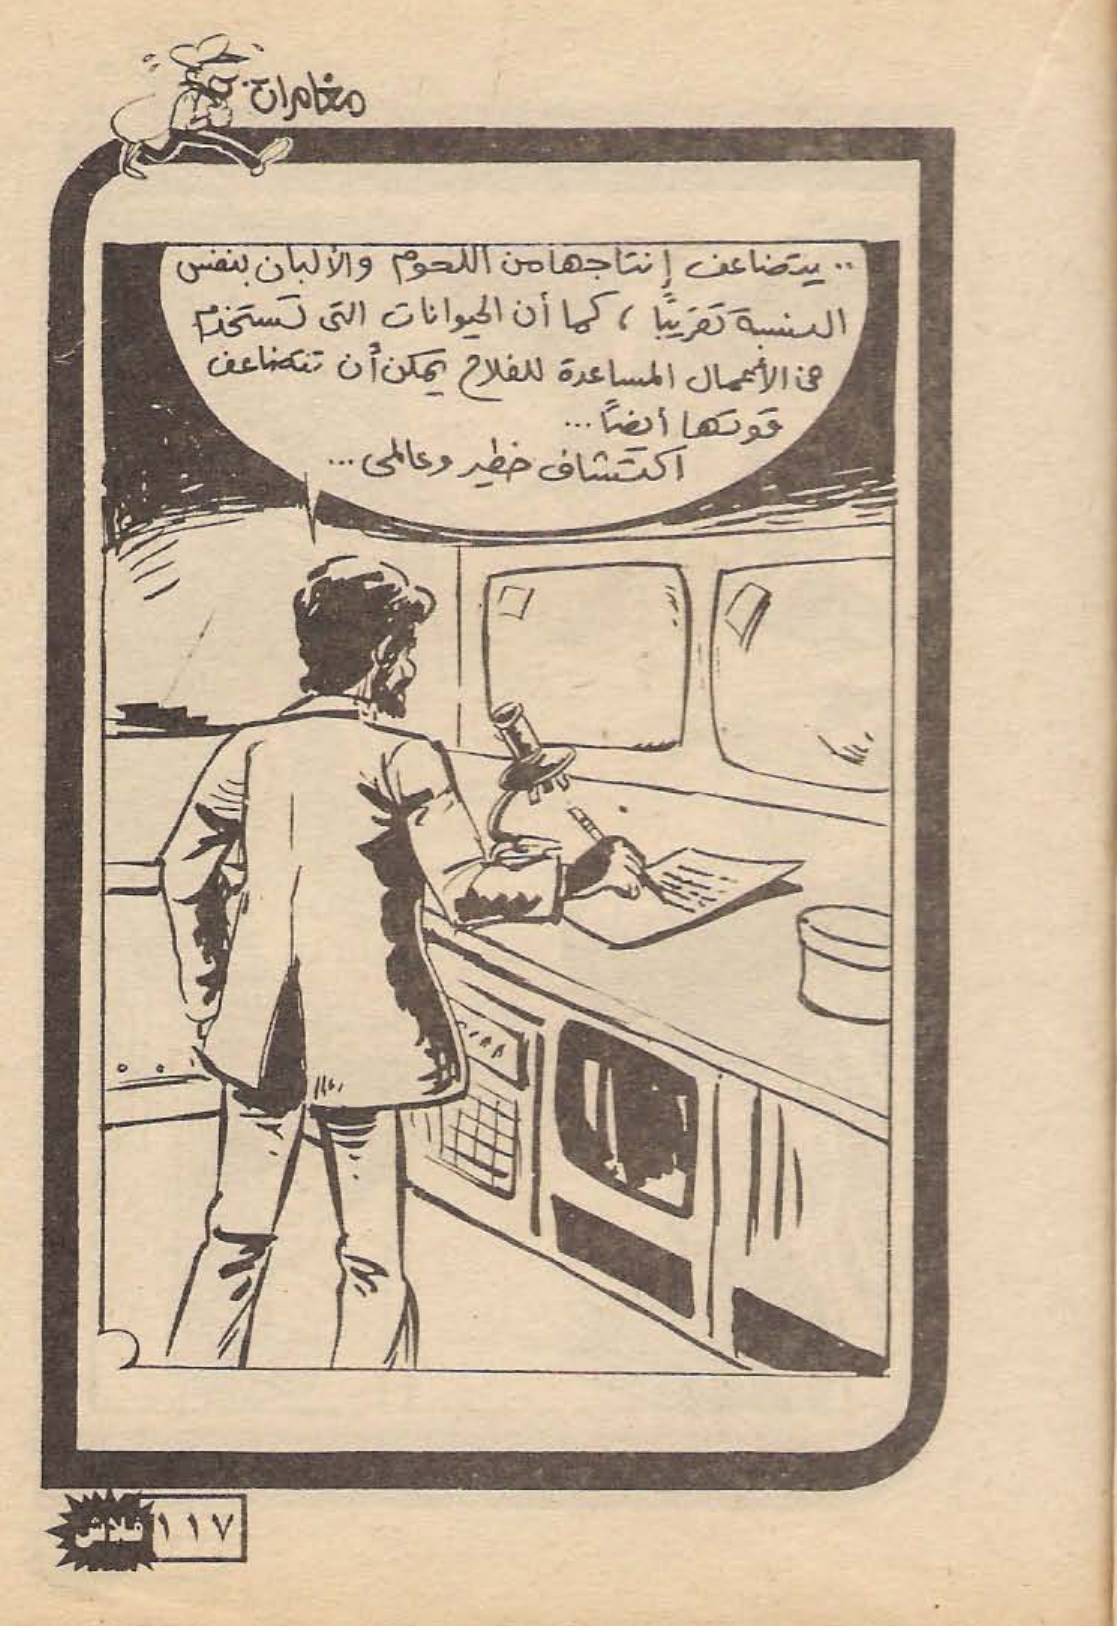 مغامرات
.. يتضاعف إنتاجها من اللحوم والألبان بنفس
النسبة تقريبًا ، كما أن الحيوانات التى تستخدم
فى الأعمال المساعدة للفلاح يمكن أن تتضاعف
قوتها أيضًا ...
اكتشاف خطير وعالمى ...
فلاش ١١٧